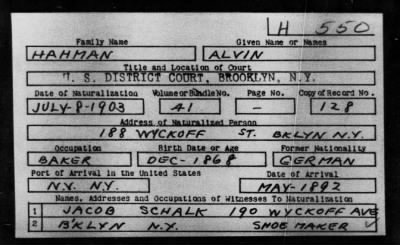 H 550
Family Name Given Name or Names
HAHMAN ALVIN
Title and Location of Court
U. S. DISTRICT COURT, BROOKLYN, N.Y.
Date of Naturalization Volume or Bundle No. Page No. Copy of Record No.
JULY-8-1903 41 - 128
Address of Naturalized Person
188 WYCKOFF ST. BKLYN N.Y.
Occupation Birth Date or Age Former Nationality
BAKER DEC-1868 GERMAN
Port of Arrival in the United States Date of Arrival
N.Y. N.Y. MAY-1892
Names, Addresses and Occupations of Witnesses To Naturalization
1 JACOB SCHALK 190 WYCKOFF AVE
2 B'KLYN N.Y. SHOE MAKER